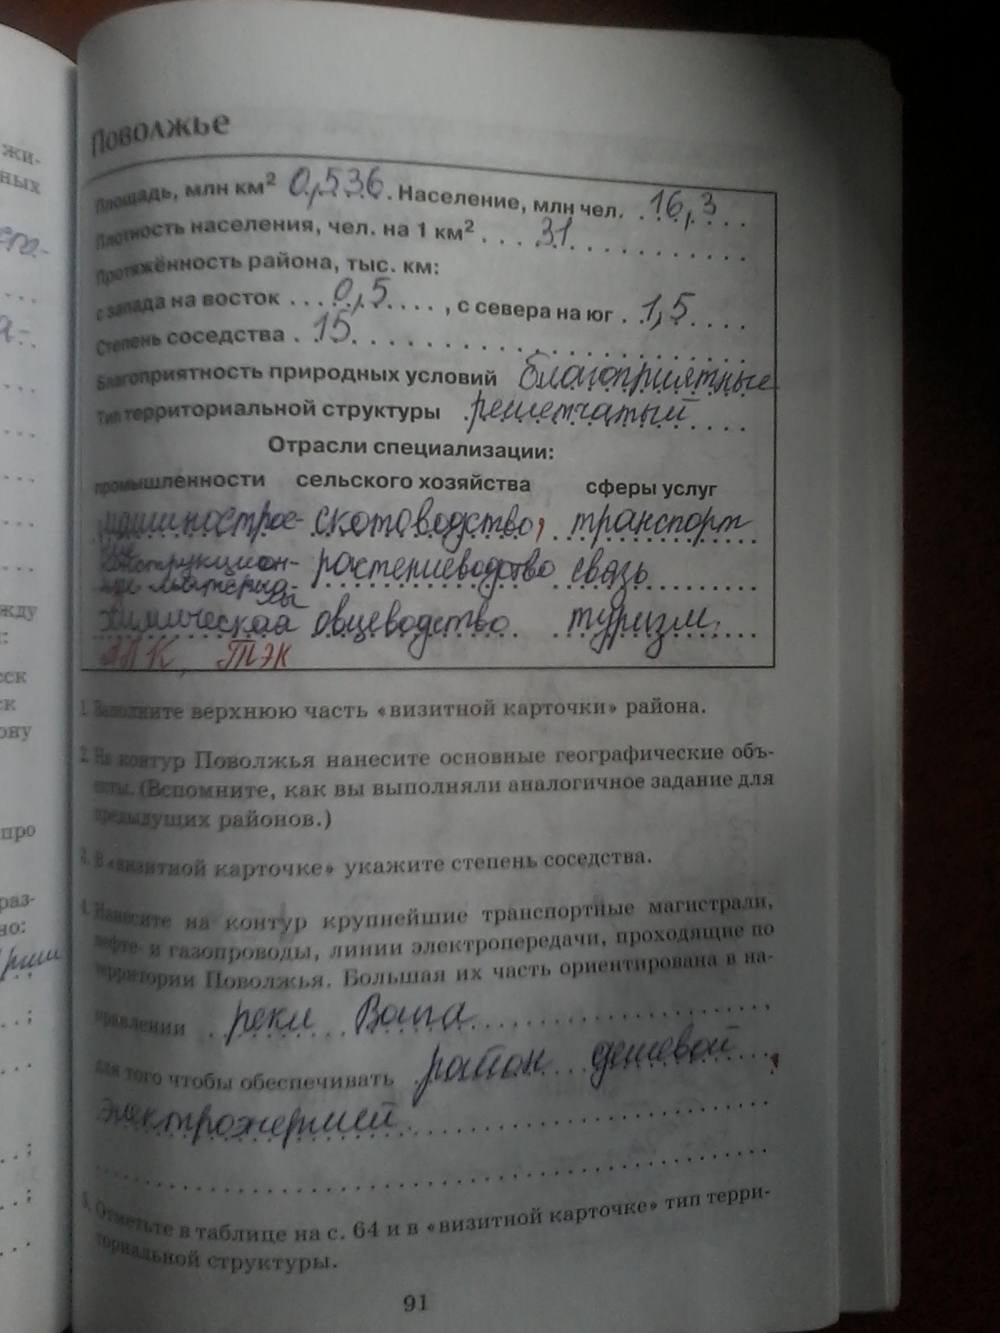 жи-
ных
Поволжье
Площадь, млн км² 0,536. Население, млн чел. 16,3
Плотность населения, чел. на 1 км² 31
Протяжённость района, тыс. км:
с запада на восток 0,5, с севера на юг 1,5
Степень соседства 15
Благоприятность природных условий благоприятные
Тип территориальной структуры решетчатый
Отрасли специализации:
промышленности сельского хозяйства сферы услуг
машинострое- скотоводство, транспорт
ние конструкцион- растениеводство связь
ные материа-
лы
химическая овцеводство туризм.
АПК, ТЭК
жду
и:
еск
ск
ону
про
раз-
но:
1. Заполните верхнюю часть «визитной карточки» района.
2. На контур Поволжья нанесите основные географические объ-
екты. (Вспомните, как вы выполняли аналогичное задание для
предыдущих районов.)
3. В «визитной карточке» укажите степень соседства.
4. Нанесите на контур крупнейшие транспортные магистрали,
нефте- и газопроводы, линии электропередачи, проходящие по
территории Поволжья. Большая их часть ориентирована в на-
правлении реки Волга,
для того чтобы обеспечивать район дешевой,
электроэнергией.
5. Отметьте в таблице на с. 64 и в «визитной карточке» тип терри-
ториальной структуры.
91